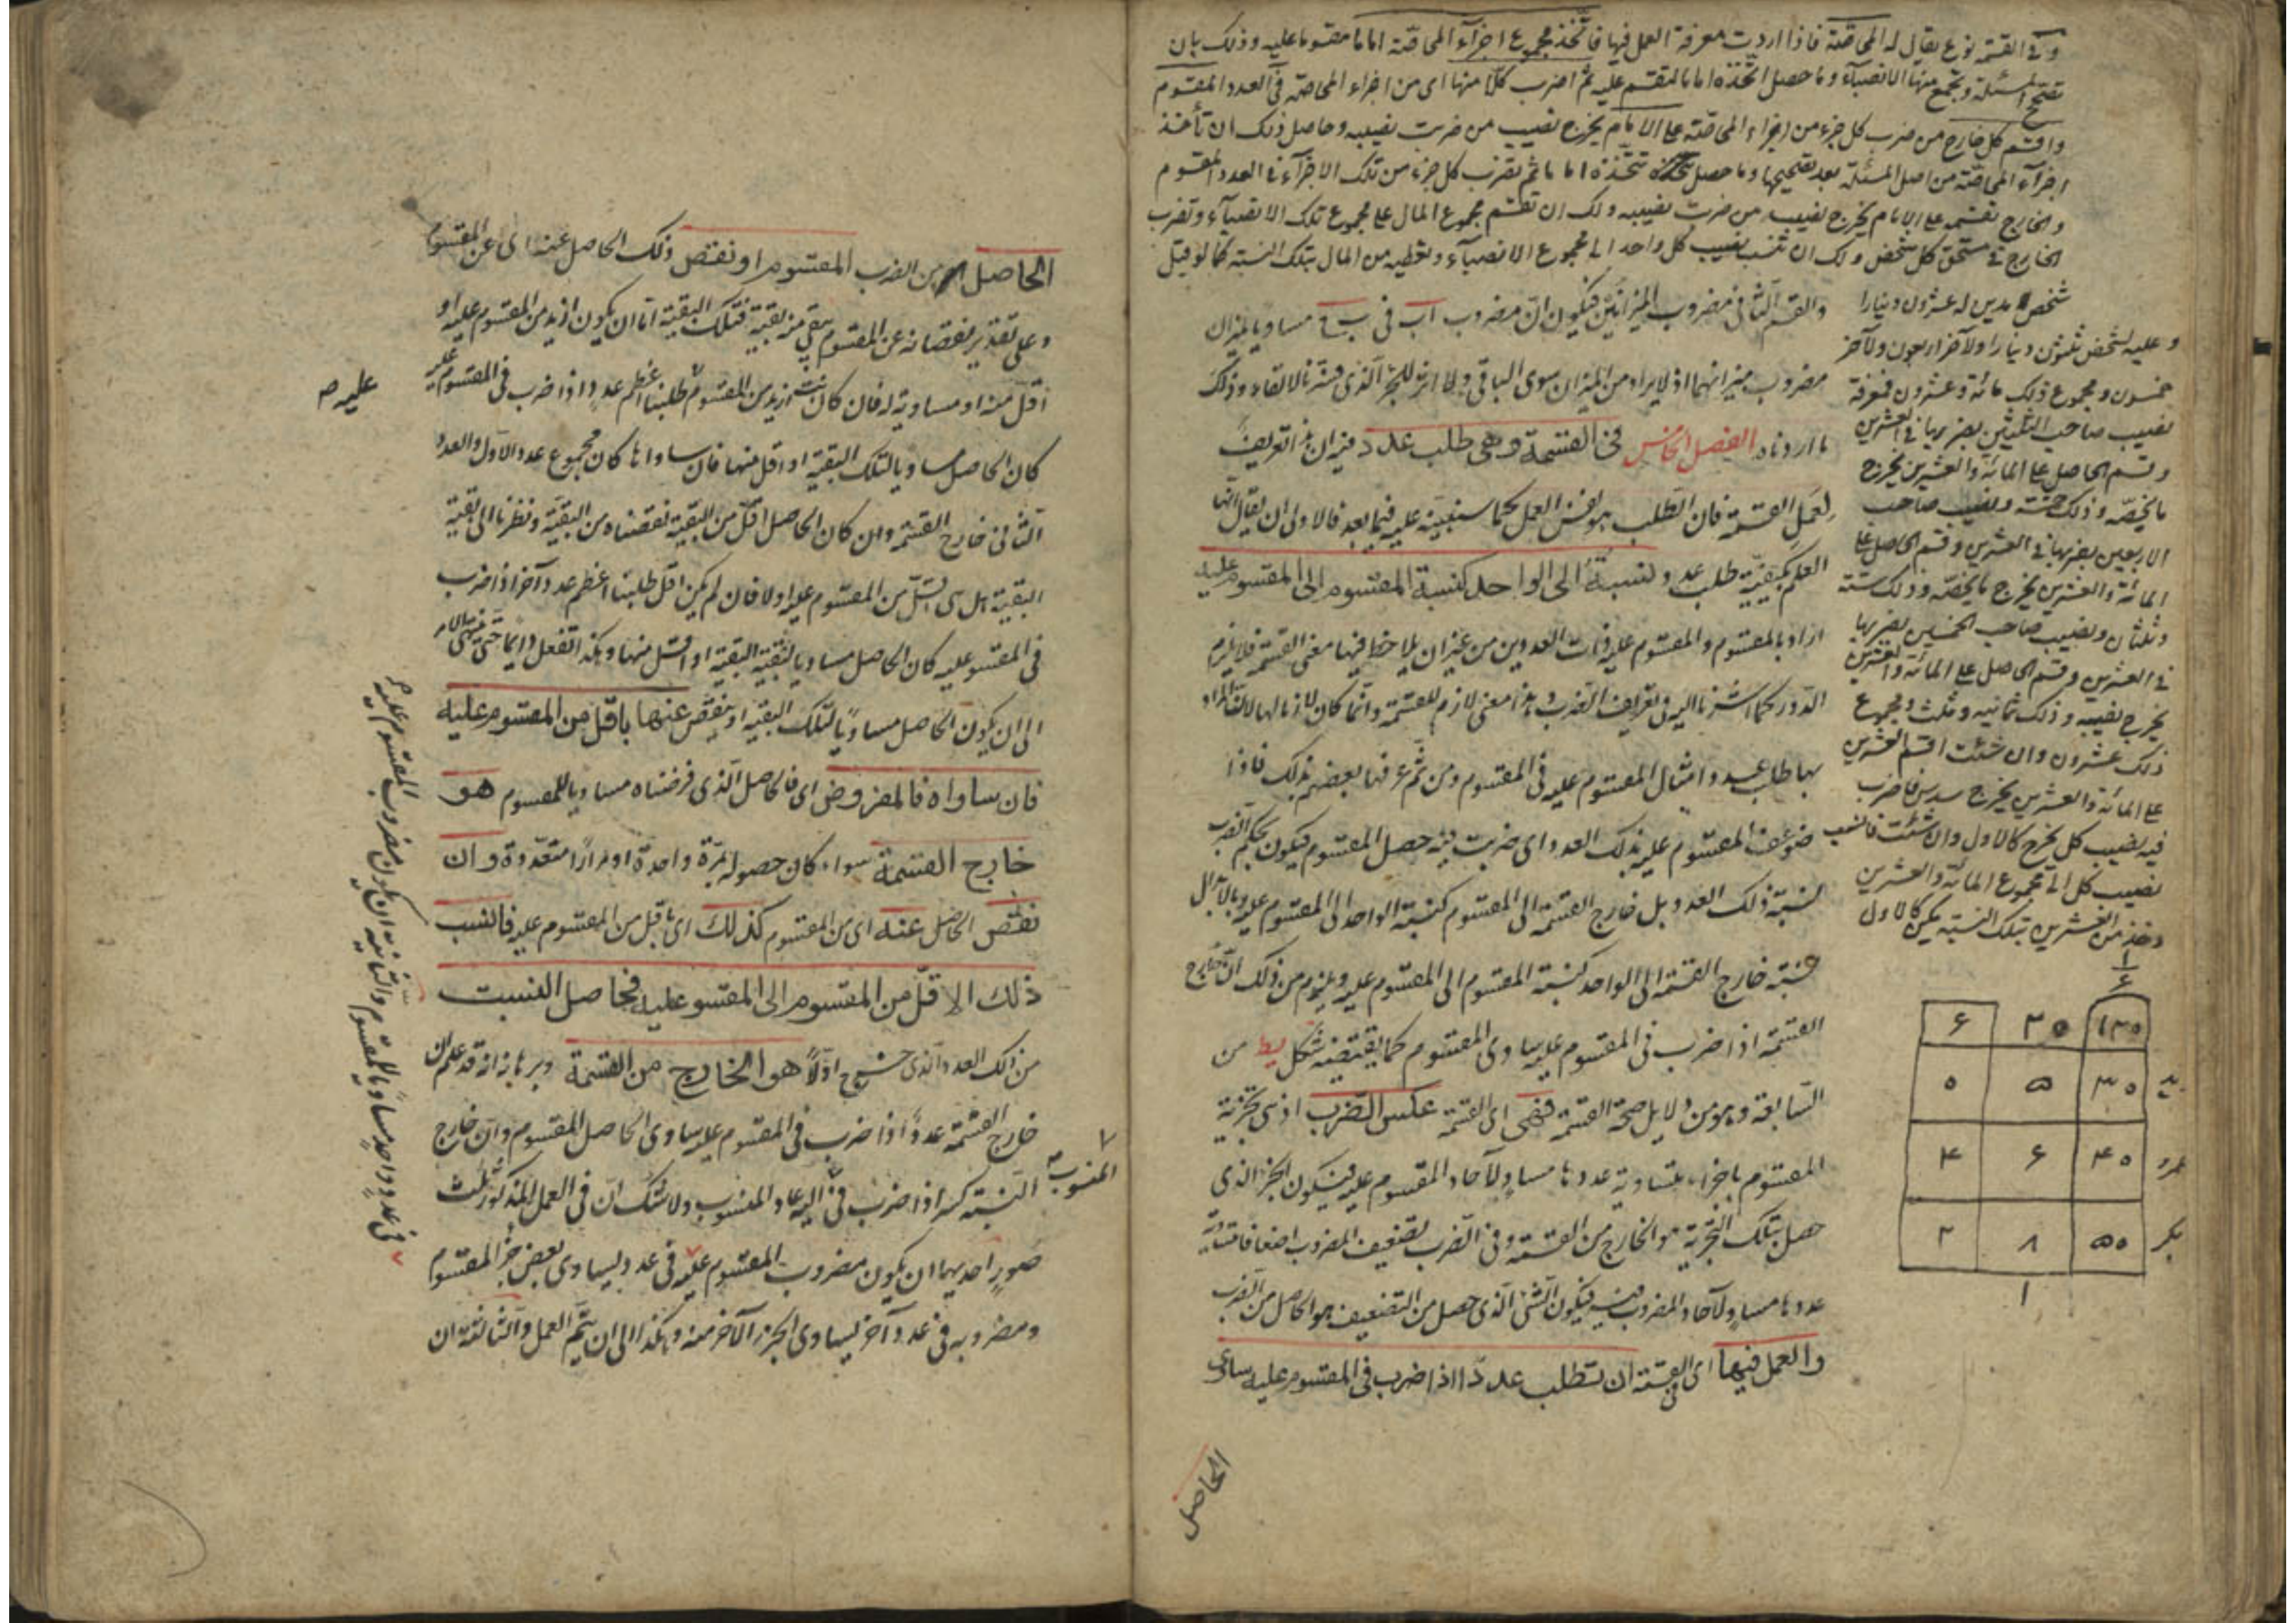 وفى القسمة نوع يقال له المحاصّة فاذا اردت معرفة العمل فيها فاتّخذ مجموع اجزآء المحاصّة اماما مقسوما عليه وذلك بان
تصحّح المسئلة وتجمع منها الانصبآء وما حصل اتّخذه اماما لتقسم عليه ثمّ اضرب كلّا منها اى من اجزاء المحاصّة فى العدد المقسوم
واقسم كل خارج من ضرب كل جزء من اجزاء المحاصّة على الامام يخرج نصيب من ضربت نصيبه وحاصل ذلك ان تأخذ
اجزآء المحاصّة من اصل المسئلة بعد تصحيحها وما حصل تتّخذه اماما ثم تضرب كل جزء من تلك الاجزآء فى العدد المقسوم
والخارج تقسمه على الامام يخرج نصيب من ضربت نصيبه ولك ان تقسم مجموع المال على مجموع تلك الانصبآء وتضرب
الخارج فى مستحق كل شخص ولك ان تنسب نصيب كل واحد الى مجموع الانصبآء وتعطيه من المال بتلك النسبة كما لو قيل
شخص مديون له عشرون دينارا
وعليه لشخص ثلثون دينارا ولآخر اربعون ولآخر
خمسون ومجموع ذلك مائة وعشرون فمعرفة
نصيب صاحب الثلثين بضربها فى العشرين
وقسم الحاصل على المائة والعشرين يخرج
ما يخصّه وذلك خمسة ونصيب صاحب
الاربعين بضربها فى العشرين وقسم الحاصل على
المائة والعشرين يخرج ما يخصّه وذلك ستة
وثلثان ونصيب صاحب الخمسين بضربها
فى العشرين وقسم الحاصل على المائة والعشرين
يخرج نصيبه وذلك ثمانيه وثلث ومجموع
ذلك عشرون وان شئت اقسم العشرين
على المائة والعشرين يخرج سدس فاضرب
فيه نصيب كل يخرج كالاول وان شئت فانسب
نصيب كل الى مجموع المائة والعشرين
وخذ من العشرين بتلك النسبة يكن كالاول
١
٦
١٢٠ ٢٠ ٦
٣٠ ٥ ٠
٤٠ ٦ ٤
بكر ٥٠ ٨ ٢
١
والقسم الثانى مضروب الميزانين فيكون انّ مضروب اب فى ب ج مساو يا لميزان
مضروب ميزانهما اذ لا يراد من الميزان سوى الباقى
ما اردناه الفصل الخامس فى القسمة وهى طلب عدد
لعمل القسمة فان الطلب هو نفس العمل كما سنبينه عليه فيما بعد فالاولى ان يقال انها
العلم بكيفيّة طلب عدد نسبته الى الواحد كنسبة المقسوم الى المقسوم عليه
اراد بالمقسوم والمقسوم عليه ذات العددين من غير ان يلاحظ فيها معنى القسمة فلا يلزم
الدّور كما اشرنا اليه فى تعريف الضّرب وهذا معنى لازم للقسمة وانّما كان لازما لها لانّ المراد
بها طلب عدد امثال المقسوم عليه فى المقسوم ومن ثمّ عرفها بعضهم بذلك فاذا
ضوعف المقسوم عليه بذلك العدد اى ضربت فيه حصل المقسوم فيكون بحكم الضرب
نسبة ذلك العدد بل خارج القسمة الى المقسوم كنسبة الواحد الى المقسوم عليه وبالابدال
فنسبة خارج القسمة الى الواحد كنسبة المقسوم الى المقسوم عليه ويلزم من ذلك انّ خارج
القسمة اذا ضرب فى المقسوم عليه ساوى المقسوم كما يقتضيه شكل يط من
السّابعة وهو من دلايل صحة القسمة فهى اى القسمة عكس الضرب اذ هى تجزية
المقسوم باجزاء متساوية عددها مساو لآحاد المقسوم عليه فيكون الجزء الذى
حصل بتلك التجزية هو الخارج من القسمة وفى الضرب تضعيف المضروب اضعافا متساوية
عددها مساو لآحاد المضروب فيه فيكون الشئ الّذى حصل من التضعيف هو الحاصل من الضرب
والعمل فيها اى فى القسمة ان تطلب عددًا اذا ضرب فى المقسوم عليه ساوى
الحاصل
الحاصل من الضرب المقسوم او نقص ذلك الحاصل عنه اى عن المقسوم
وعلى تقدير نقصانه عن المقسوم يبقى منه بقية فتلك البقية امّا ان يكون ازيد من المقسوم عليه او
اقلّ منه او مساوية له فان كانت ازيد من المقسوم طلبنا اعظم عدد اذا ضرب فى المقسوم عليه
عليه صح
كان الحاصل مساويا لتلك البقية او اقل منها فان ساواها كان مجموع عدد الاوّل والعدد
الثانى خارج القسمة وان كان الحاصل اقلّ من البقيّة نقصناه من البقيّة ونظرنا الى بقية
البقية هل هى اقلّ من المقسوم عليه اولا فان لم يكن اقل طلبنا اعظم عدد آخر اذا ضرب
فى المقسوم عليه كان الحاصل مساويا لبقية البقية او اقلّ منها وهكذا نفعل دايما حتى ينتهى الامر
الى ان يكون الحاصل مساويًا لتلك البقية او ينقص عنها باقل من المقسوم عليه
فان ساواه فالمفروض اى فالحاصل الّذى فرضناه مساويا للمقسوم هو
خارج القسمة سواء كان حصوله بمرّة واحدة او مرارًا متعدّدة وان
نقص الحاصل عنه اى من المقسوم كذلك اى باقل من المقسوم عليه فانسب
ذلك الاقلّ من المقسوم الى المقسوم عليه فحاصل النسبت
من ذلك العدد الّذى خرج اوّلاً هو الخارج من القسمة وبرهانه انه قد علم ان
خارج القسمة عدد اذا ضرب فى المقسوم عليه ساوى الحاصل المقسوم وان خارج
النسبة كسر اذا ضرب فى اليه عاد المنسوب ولا شك انّ فى العمل المذكور ثلث
المنسوب
صور احديهما ان يكون مضروب المقسوم عليه فى عدد ليساوى بعض جزء المقسوم
ومضروبه فى عدد آخر ليساوى الجزء الآخر منه وهكذا الى ان يتمّ العمل والثالثة ان
فى عدد واحد مساويا للمقسوم والثانية ان يكون مضروب المقسوم عليه